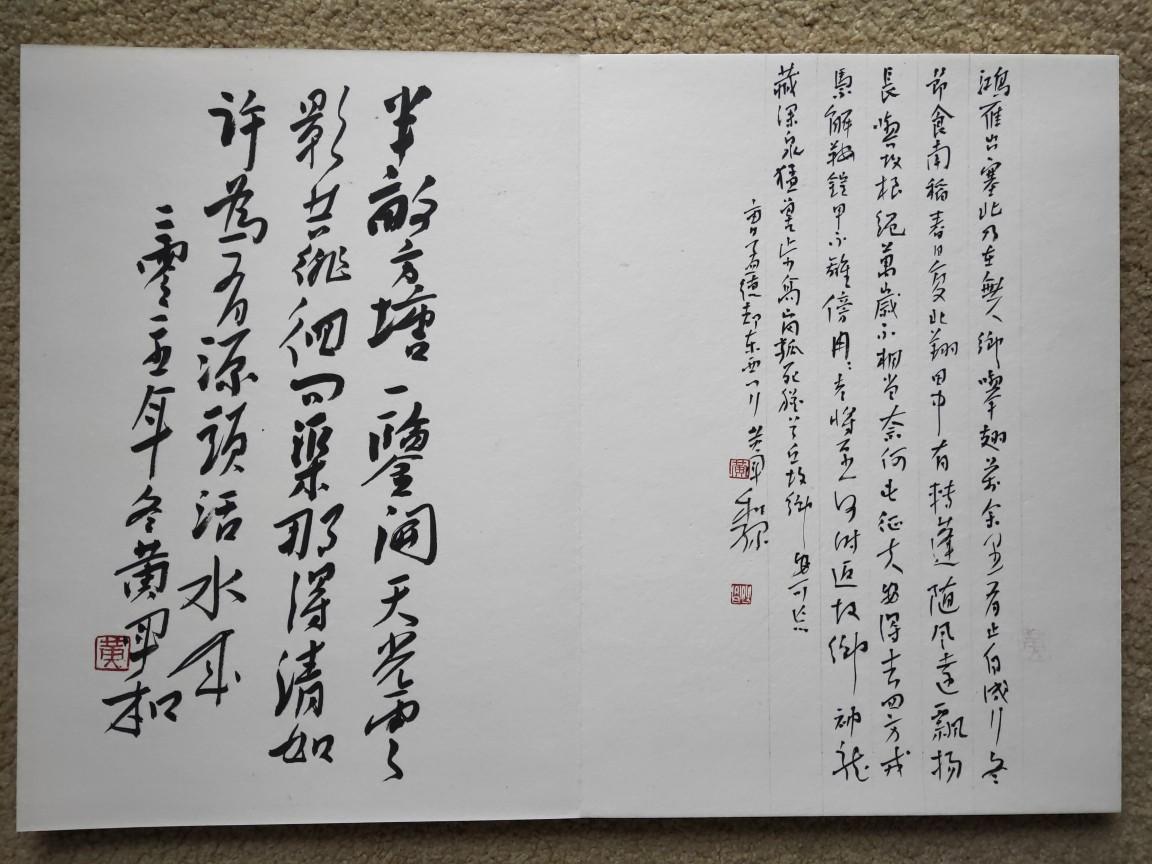 鴻雁出塞北乃在無人鄉舉翅萬余里行止自成行冬
節食南稻春日复北翔田中有轉蓬隨風遠飄揚
長與故根絕萬歲不相當奈何此征夫安得去四方戎
馬解鞍鎧甲不離傍冉〻老將至何时返故鄉神龍
藏深泉猛獸步高岡狐死歸首丘故鄉安可忘
曹孟德却东西门行黄
黄
半畝方塘一鑒開天光雲
影共徘徊問渠那得清如
許爲有源頭活水來
二零一五年冬黄
黄